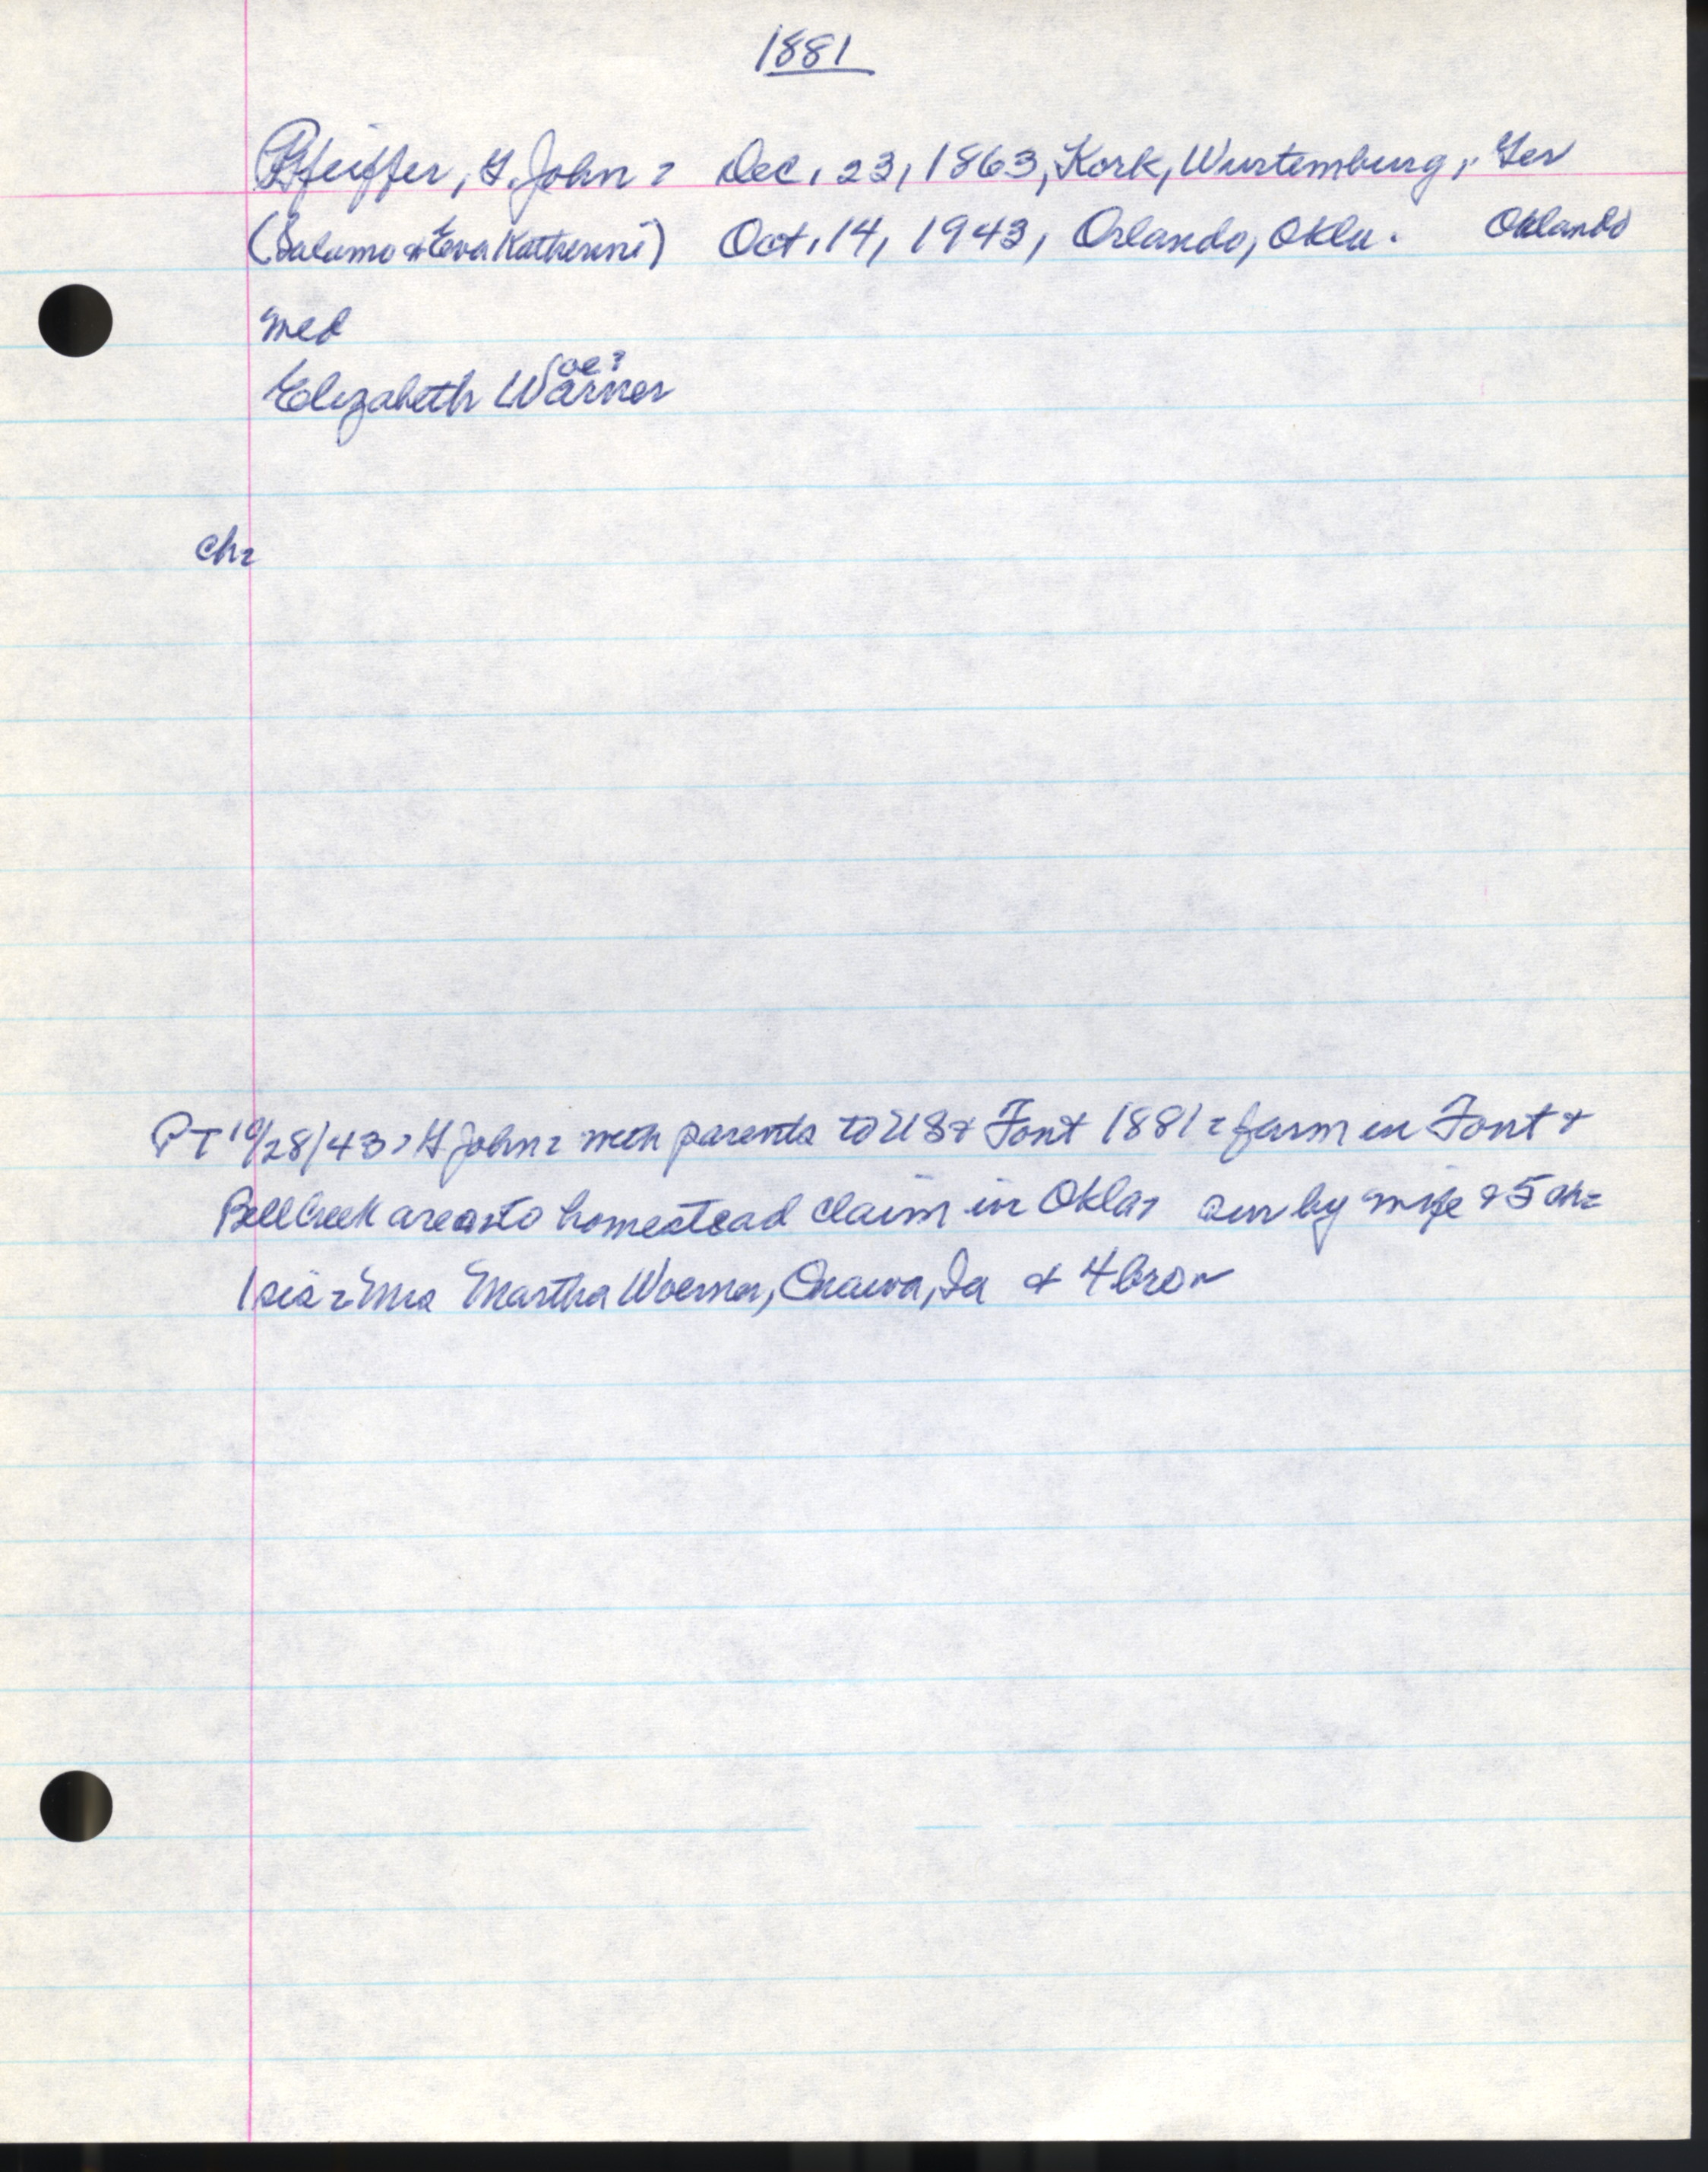 1881
Pfeiffer, G. John = Dec. 23, 1863, Kork, Wurtemburg, Ger
(Salamo & Eva Katherine) Oct. 14, 1943, Orlando, Okla. Orlando
med
oe?
Elizabeth Warner
ch=
PT 10/28/43, G John = with parents to US & Font 1881 = farm in Font &
Bell Creek areas to homestead claim in Okla, sur by wife & 5 ch=
1 sis = Mrs Martha Woerner, Onawa, Ia & 4 bros